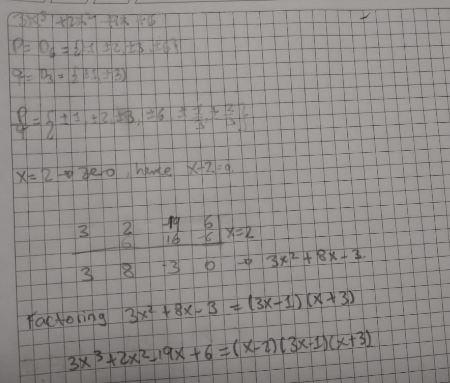 3x³ + 2x² - 19x + 6
P = D₆ = {±1, ±2, ±3, ±6}
q = D₃ = {±1, ±3}
P/q = {±1, ±2, ±3, ±6, ±1/3, ±2/3}
x=2 → zero, hence x-2=0
3 2 -19 6
6 16 -6 x=2
3 8 -3 0 → 3x²+8x-3
Factoring 3x²+8x-3 = (3x-1)(x+3)
3x³+2x²-19x+6 = (x-2)(3x-1)(x+3)